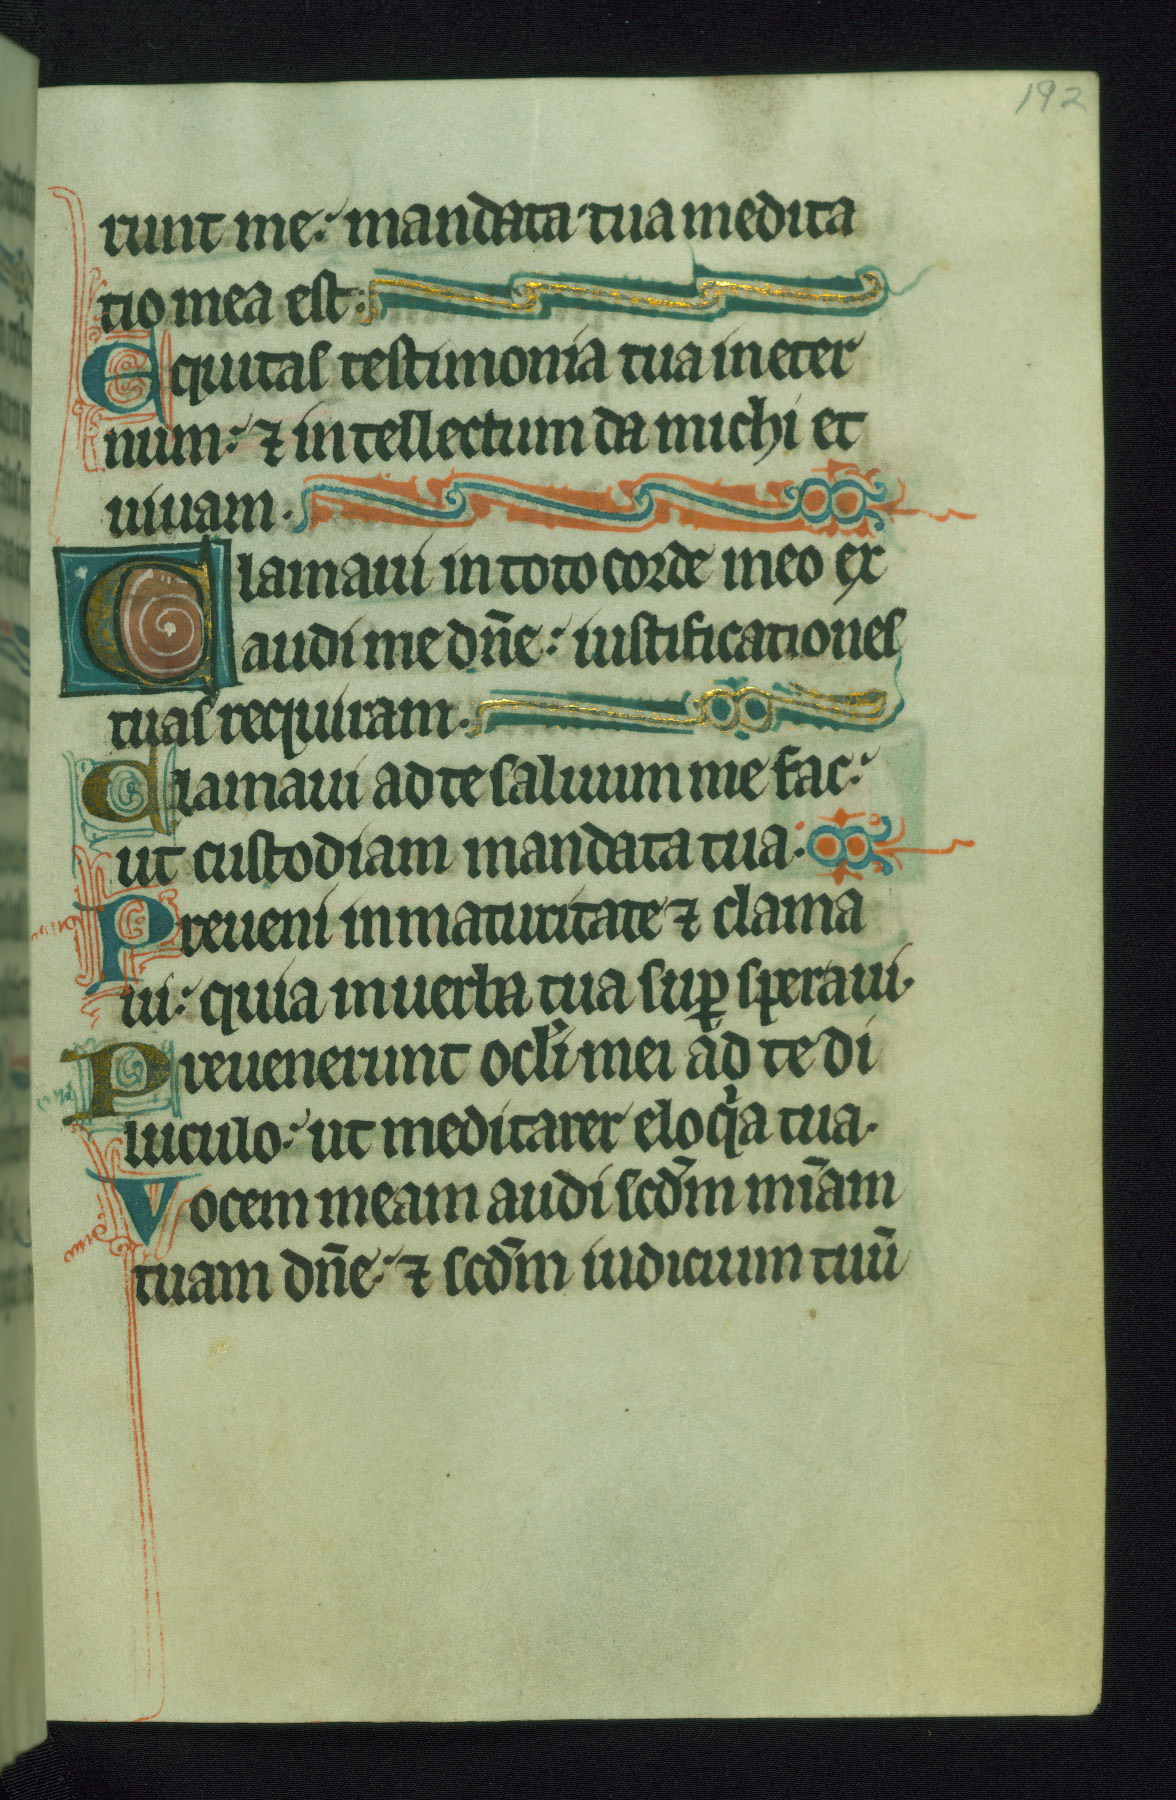 192
runt me: mandata tua medita
tio mea est.
Equitas testimonia tua in eter
num: ⁊ intellectum da michi et
uiuam.
Clamaui in toto corde meo ex
audi me dn̄e: iustificationes
tuas requiram.
Clamaui ad te saluum me fac:
ut custodiam mandata tua.
Preueni in maturitate ⁊ clama
ui: quia in uerba tua suꝑ speraui.
Preuenerunt ocl̄i mei ad te di
luculo: ut meditarer eloqͥa tua.
Vocem meam audi scd̄m mīam
tuam dn̄e: ⁊ scd̄m iudicium tuū